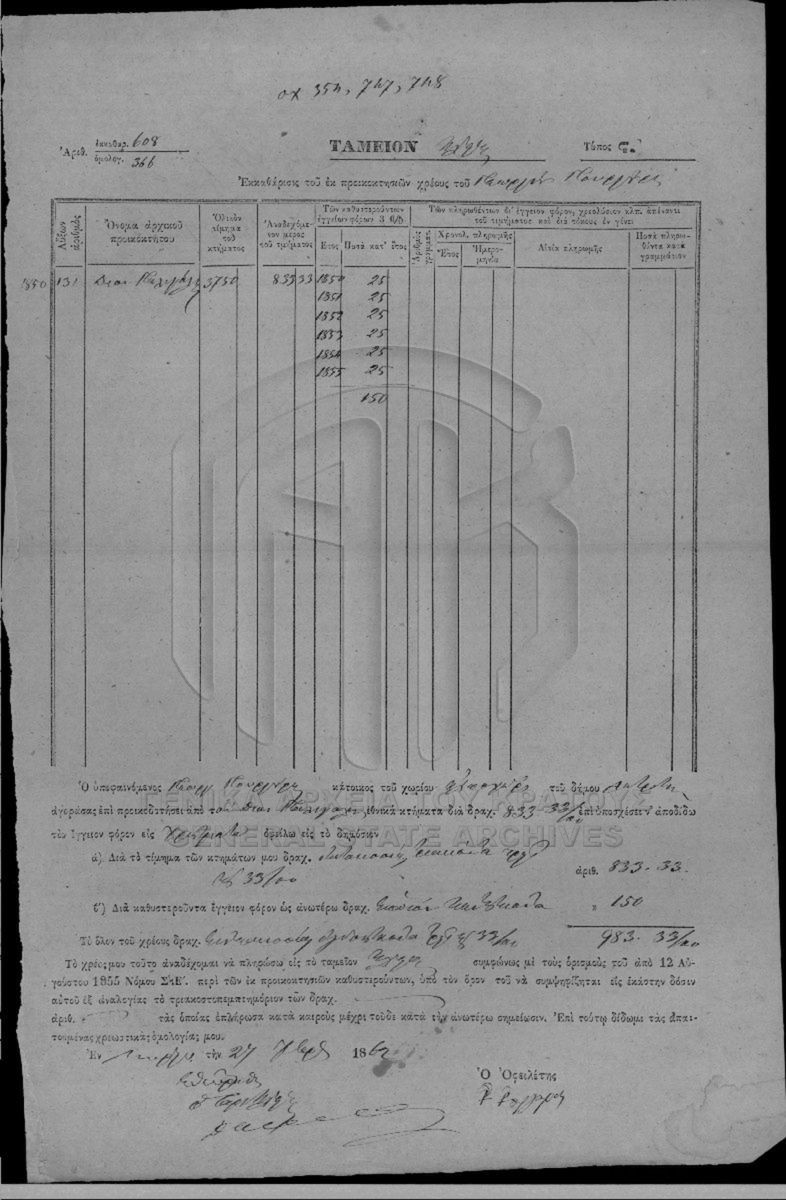 οχ 354, 747, 748
Ἀριθ. ἐκκαθαρ. 608
ὁμολογ. 366
ΤΑΜΕΙΟΝ
Τύπος Γ.
Ἐκκαθάρισις τοῦ ἐκ προικοκτησιῶν χρέους τοῦ
Αὔξων ἀριθμὸς
Ὄνομα ἀρχικοῦ προικοκτήτου
Ὁλικὸν τίμημα τοῦ κτήματος
Ἀναδεχόμενον μέρος τοῦ τιμήματος
Τῶν καθυστερούντων ἐγγείων φόρων 3 0/0
Ἔτος
Ποσὰ κατ' ἔτος
Τῶν πληρωθέντων δι' ἔγγειον φόρον, χρεολύσιον κλπ. ἀπέναντι τοῦ τιμήματος καὶ διὰ τόκους ἐν γένει
Ἀριθμὸς γραμματ.
Χρονολ. πληρωμῆς
Ἔτος
Ἡμερομηνία
Αἰτία πληρωμῆς
Ποσὰ πληρωθέντα κατὰ γραμμάτιον
1850 131 3750 833 33 1850 25
1851 25
1852 25
1853 25
1854 25
1855 25
150
Ὁ ὑποφαινόμενος κάτοικος τοῦ χωρίου τοῦ δήμου
ἀγοράσας ἐπὶ προικοδοτήσει ἀπὸ τοῦ ἐθνικὰ κτήματα διὰ δραχ. 833 33/00 ἐπὶ ὑποσχέσει ν' ἀποδίδω
τὸν ἔγγειον φόρον εἰς χρήματα ὀφείλω εἰς τὸ δημόσιον
ά.) Διὰ τὸ τίμημα τῶν κτημάτων μου δραχ. ὀκτακοσίας τριάκοντα τρεῖς
33/100 ἀριθ. 833. 33.
β΄) Διὰ καθυστεροῦντα ἔγγειον φόρον ὡς ἀνωτέρω δραχ. ἑκατὸν πεντήκοντα » 150
Τὸ ὅλον τοῦ χρέους δραχ. ἐννεακοσίας ὀγδοήκοντα τρεῖς 33/100 983. 33/100
Τὸ χρέος μου τοῦτο ἀναδέχομαι νὰ πληρώσω εἰς τὸ ταμεῖον συμφώνως μὲ τοὺς ὁρισμοὺς τοῦ ἀπὸ 12 Αὐ-
γούστου 1855 Νόμου ΣΛΕ΄. περὶ τῶν ἐκ προικοκτησιῶν καθυστερούντων, ὑπὸ τὸν ὅρον τοῦ νὰ συμψηφίζηται εἰς ἑκάστην δόσιν
αὐτοῦ ἐξ ἀναλογίας τὸ τριακοστοπεμπτημόριον τῶν δραχ.
ἀριθ. τὰς ὁποίας ἐπλήρωσα κατὰ καιροὺς μέχρι τοῦδε κατὰ τὴν ἀνωτέρω σημείωσιν. Ἐπὶ τούτῳ δίδωμι τὰς ἀπαι-
τουμένας χρεωστικὰς ὁμολογίας μου.
Ἐν τὴν 27 1862
Ὁ Ὀφειλέτης
ΓΕΝΙΚΑ ΑΡΧΕΙΑ ΤΟΥ ΚΡΑΤΟΥΣ
GENERAL STATE ARCHIVES